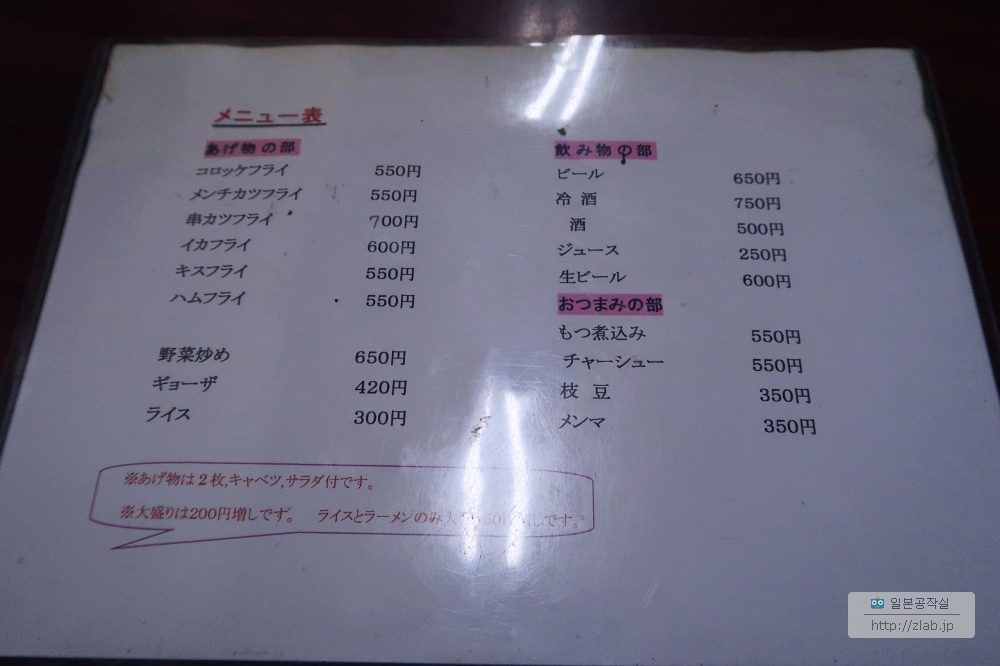 メニュー表
あげ物の部
コロッケフライ 550円
メンチカツフライ 550円
串カツフライ 700円
イカフライ 600円
キスフライ 550円
ハムフライ 550円
野菜炒め 650円
ギョーザ 420円
ライス 300円
※あげ物は2枚,キャベツ,サラダ付です。
※大盛りは200円増しです。 ライスとラーメンのみ大 しです。
飲み物の部
ビール 650円
冷酒 750円
酒 500円
ジュース 250円
生ビール 600円
おつまみの部
もつ煮込み 550円
チャーシュー 550円
枝豆 350円
メンマ 350円
일본공작실
http://zlab.jp